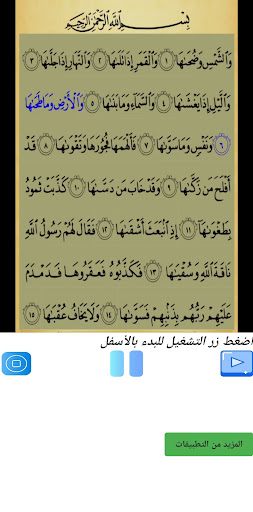 بِسْمِ اللَّهِ الرَّحْمَٰنِ الرَّحِيمِ
وَالشَّمْسِ وَضُحَىٰهَا ۝١ وَالْقَمَرِ إِذَا تَلَىٰهَا ۝٢ وَالنَّهَارِ إِذَا جَلَّىٰهَا ۝٣
وَاللَّيْلِ إِذَا يَغْشَىٰهَا ۝٤ وَالسَّمَآءِ وَمَا بَنَىٰهَا ۝٥ وَالْأَرْضِ وَمَا طَحَىٰهَا
۝٦ وَنَفْسٍ وَمَا سَوَّىٰهَا ۝٧ فَأَلْهَمَهَا فُجُورَهَا وَتَقْوَىٰهَا ۝٨ قَدْ
أَفْلَحَ مَن زَكَّىٰهَا ۝٩ وَقَدْ خَابَ مَن دَسَّىٰهَا ۝١٠ كَذَّبَتْ ثَمُودُ
بِطَغْوَىٰهَآ ۝١١ إِذِ انۢبَعَثَ أَشْقَىٰهَا ۝١٢ فَقَالَ لَهُمْ رَسُولُ اللَّهِ
نَاقَةَ اللَّهِ وَسُقْيَىٰهَا ۝١٣ فَكَذَّبُوهُ فَعَقَرُوهَا فَدَمْدَمَ
عَلَيْهِمْ رَبُّهُم بِذَنۢبِهِمْ فَسَوَّىٰهَا ۝١٤ وَلَا يَخَافُ عُقْبَىٰهَا ۝١٥
اضغط زر التشغيل للبدء بالأسفل
المزيد من التطبيقات